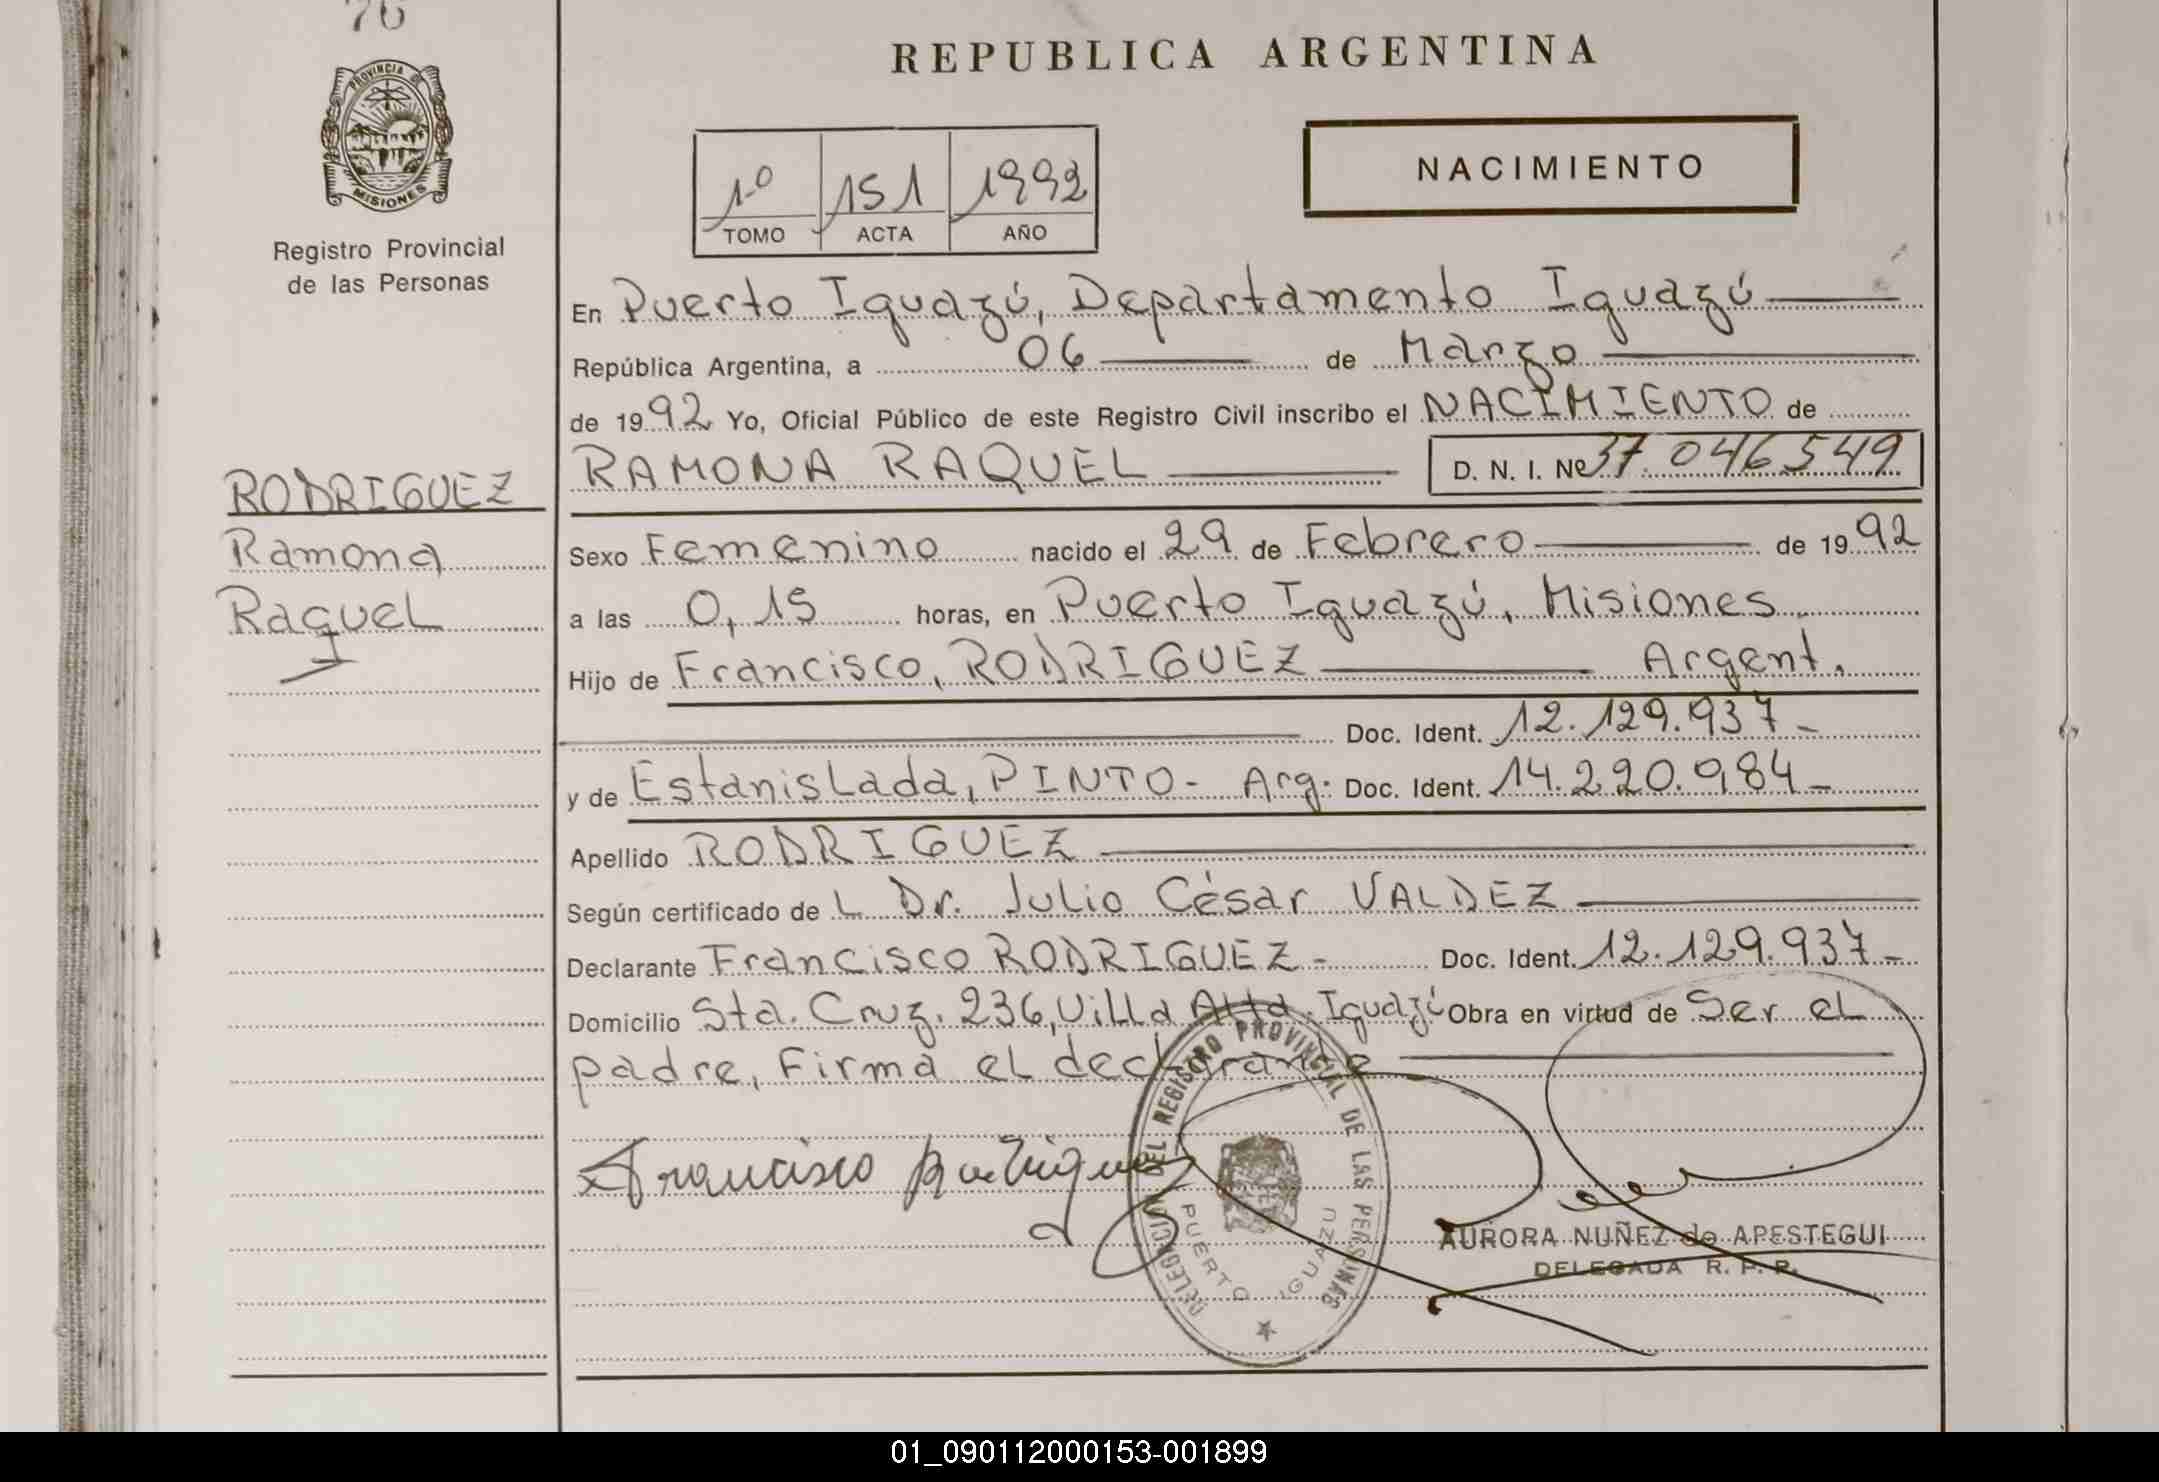 76
PROVINCIA DE
MISIONES
Registro Provincial
de las Personas
RODRIGUEZ
Ramona
Raquel
REPUBLICA ARGENTINA
1º 151 1992
TOMO ACTA AÑO
NACIMIENTO
En Puerto Iguazú, Departamento Iguazú
República Argentina, a 06 de Marzo
de 1992 Yo, Oficial Público de este Registro Civil inscribo el NACIMIENTO de
RAMONA RAQUEL D. N. I. Nº 37.046549
Sexo Femenino nacido el 29 de Febrero de 1992
a las 0,15 horas, en Puerto Iguazú, Misiones
Hijo de Francisco, RODRIGUEZ Argent.
Doc. Ident. 12.129.937-
y de Estanislada, PINTO- Arg. Doc. Ident. 14.220.984-
Apellido RODRIGUEZ
Según certificado de L Dr. Julio César VALDEZ
Declarante Francisco RODRIGUEZ- Doc. Ident. 12.129.937-
Domicilio Sta. Cruz. 236, Villa Alta. Iguazú Obra en virtud de Ser el
padre, Firma el declarante
Francisco Rodrigues
DELEGACION DEL REGISTRO PROVINCIAL DE LAS PERSONAS
PUERTO IGUAZU
AURORA NUÑEZ de APESTEGUI
DELEGADA R. P. P.
01_090112000153-001899